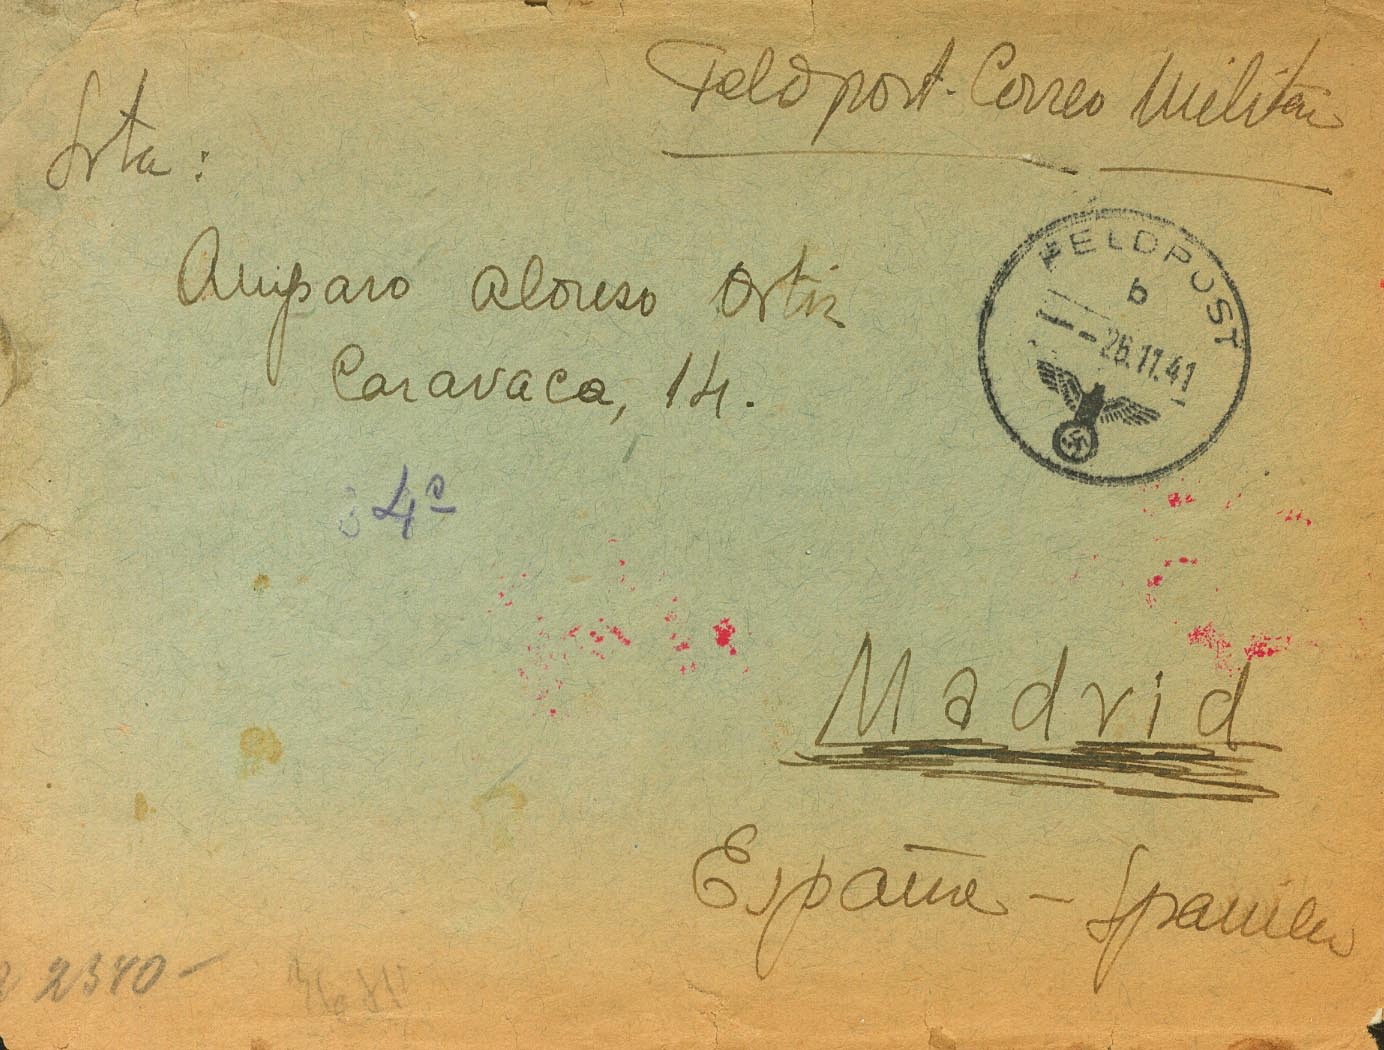 Feldpost. Correo Militar
Srta:
FELDPOST
b
26.11.41
Amparo Alonso Ortiz
Caravaca, 14.
4º
Madrid
España - Spanien
2340-